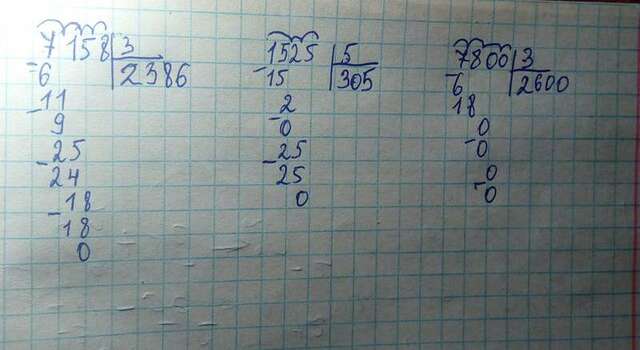 7158 3 1525 5 7800 3
-6 2386 -15 305 -6 2600
-11 -2 18
9 0 0
-25 -25 -0
24 25 0
-18 0 -0
18
0